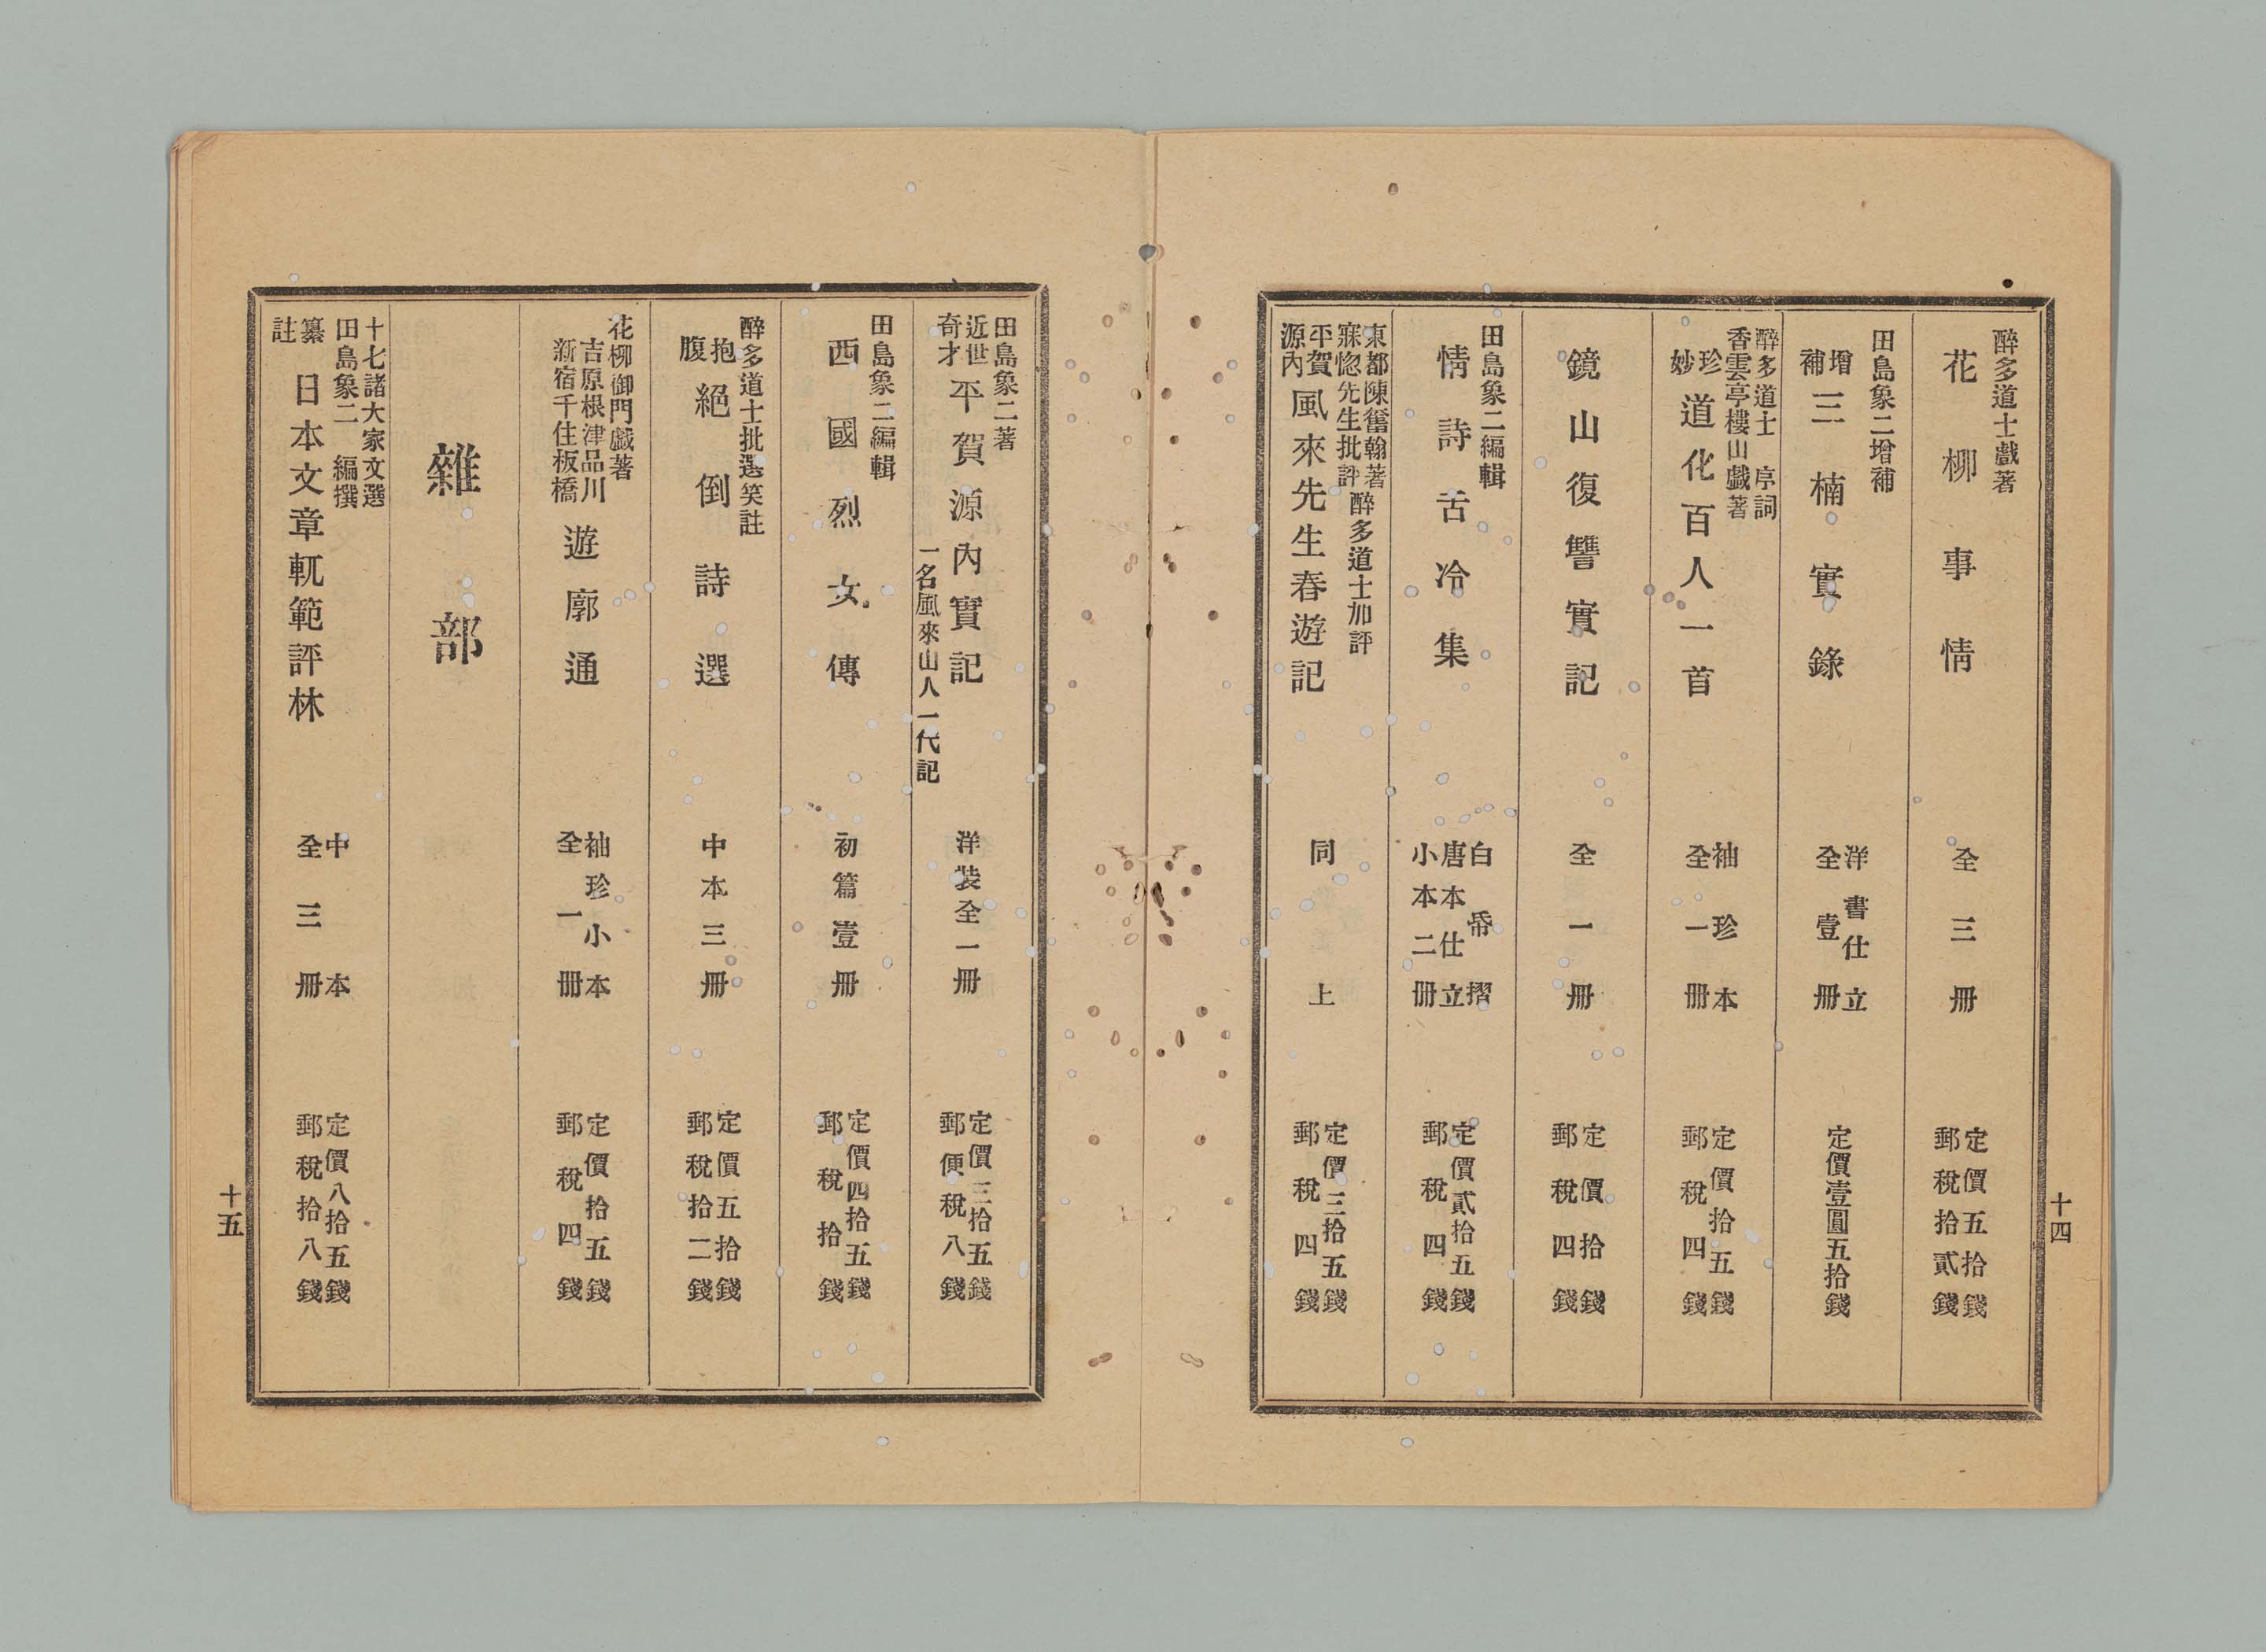 醉多道士戲著
花柳事情
全三冊
定價五拾錢
郵税拾貳錢
田島象二增補
增補
三楠實錄
洋書仕立
全壹冊
定價壹圓五拾錢
醉多道士 序詞
香雲亭樓山戲著
珍妙
道化百人一首
袖珍本
全一冊
定價拾五錢
郵税四錢
鏡山復讐實記
全一冊
定價拾錢
郵税四錢
田島象二編輯
情詩舌冷集
白帋摺
唐本仕立
小本二冊
定價貳拾五錢
郵税四錢
東都陳奮翰著
寐惚先生批評
醉多道士加評
平賀源內
風來先生春遊記
同上
定價三拾五錢
郵税四錢
十四
田島象二著
近世奇才
平賀源內實記
一名風來山人一代記
洋裝全一冊
定價三拾五錢
郵便税八錢
田島象二編輯
西國烈女傳
初篇壹冊
定價四拾五錢
郵税拾錢
醉多道士批選笑註
抱腹
絕倒詩選
中本三冊
定價五拾錢
郵税拾二錢
花柳御門戲著
吉原根津品川
新宿千住板橋
遊廓通
袖珍小本
全一冊
定價拾五錢
郵税四錢
雜部
十七諸大家文選
田島象二 編撰
纂註
日本文章軌範評林
中本
全三冊
定價八拾五錢
郵税拾八錢
十五